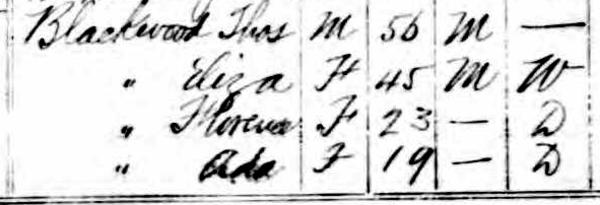 Blackwood Thos M 56 M —
" Eliza F 45 M W
" Florence F 23 — D
" Ada F 19 — D